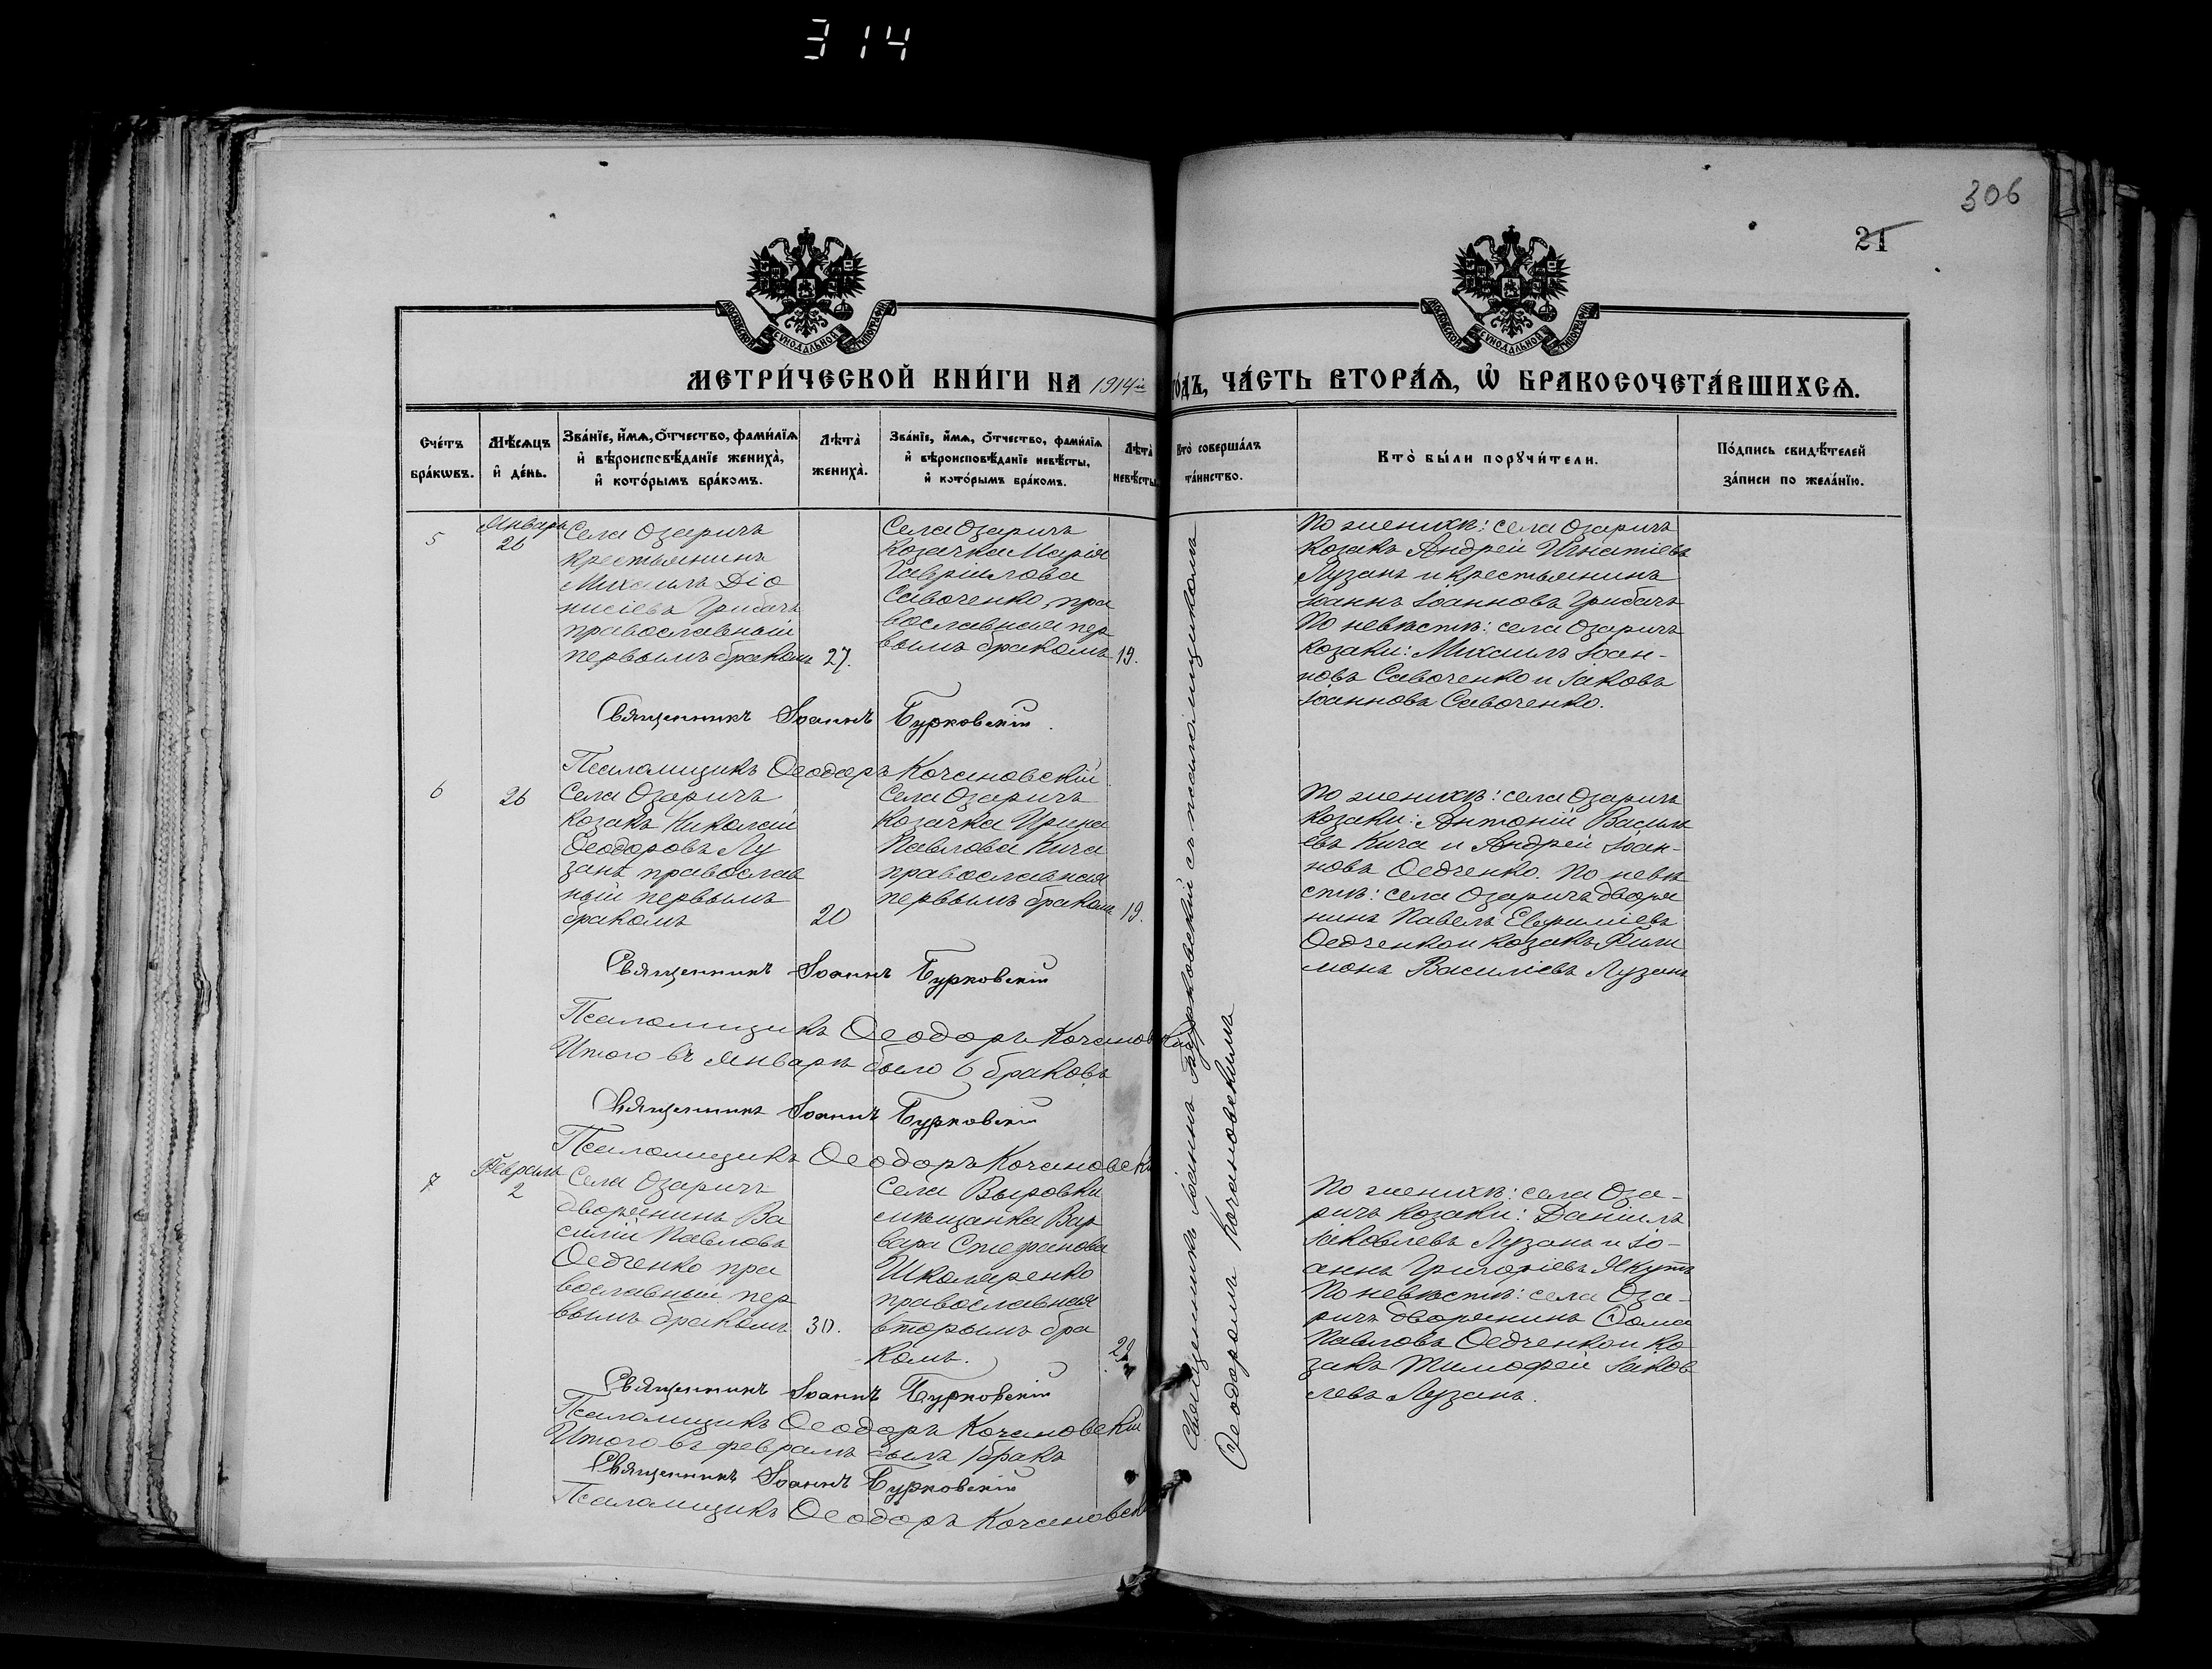 314
306
21
МОСКОВСКОЙ СѴНОДАЛЬНОЙ ТИПОГРАФІИ
МОСКОВСКОЙ СѴНОДАЛЬНОЙ ТИПОГРАФІИ
МЕТРИ́ЧЕСКОЙ КНИ́ГИ НА 1914й ГО́ДЪ, ЧА́СТЬ ВТОРА́Ѧ, Ѡ҆ БРАКОСОЧЕТА́ВШИХСѦ.
Сче́тъ бра́кѡвъ.
Мѣ́сѧцъ и҆ де́нь.
Зва́нїе, и҆́мѧ, ѻ҆́тчество, фами́лїѧ и҆ вѣроисповѣ́данїе жениха̀, и҆ кото́рымъ бра́комъ.
Лѣта̀ жениха̀.
Зва́нїе, и҆́мѧ, ѻ҆́тчество, фами́лїѧ и҆ вѣроисповѣ́данїе невѣ́сты, и҆ кото́рымъ бра́комъ.
Лѣта̀ невѣ́сты.
Кто̀ соверша́лъ та́инство.
Кто̀ бы́ли порꙋчи́тели.
По́дпись свидѣ́телей за́писи по жела́нїю.
5
Январь
26
Села Озаричъ
крестьянинъ
Михаилъ Діо
нисіевъ Грибачъ
православный
первымъ бракомъ
27.
Села Озаричъ
козачка Марія
Гавріилова
Савоченко, пра
вославная пер
вымъ бракомъ
19.
По женихѣ: села Озаричъ
козакъ Андрей Игнатіевъ
Лузанъ и крестьянинъ
Іоаннъ Іоанновъ Грибачъ
По невѣстѣ: села Озаричъ
козаки: Михаилъ Іоан-
новъ Савоченко и Іаковъ
Іоанновъ Савоченко.
Священникъ Іоаннъ Бурковскій.
Псаломщикъ Ѳеодоръ Кочановскій
6
26
Села Озаричъ
козакъ Николай
Ѳеодоровъ Лу
занъ православ
ный первымъ
бракомъ
20
Села Озаричъ
козачка Ирина
Павлова Кича
православная
первымъ бракомъ
19.
По женихѣ: села Озаричъ
козаки: Антоній Василі
евъ Кича и Андрей Іоан-
новъ Ѳедченко. По невѣ
стѣ: села Озаричъ дворя
нинъ Павелъ Евфиміевъ
Ѳедченко и козакъ Фили
монъ Василіевъ Лузанъ
Священникъ Іоаннъ Бурковскій
Псаломщикъ Ѳеодоръ Кочановскій
Итого въ январѣ было 6 браковъ
Священникъ Іоаннъ Бурковскій
Псаломщикъ Ѳеодоръ Кочановскі
7
Февраль
2
Села Озаричъ
дворянинъ Ва
силій Павловъ
Ѳедченко пра
вославный пер
вымъ бракомъ
30.
Села Выровки
мѣщанка Вар
вара Стефанова
Школяренко
православная
вторымъ бра
комъ.
По женихѣ: села Оза-
ричъ козаки: Даніилъ
Іаковлевъ Лузанъ и Іо-
аннъ Григоріевъ Якутъ
По невѣстѣ: села Оза-
ричъ дворянинъ Ѳома
Павловъ Ѳедченко и ко
закъ Тимофей Іаков
левъ Лузанъ.
Священникъ Іоаннъ Бурковскій
Псаломщикъ Ѳеодоръ Кочановскій
Итого въ февралѣ былъ 1 бракъ
Священникъ Іоаннъ Бурковскій
Псаломщикъ Ѳеодоръ Кочановск
Священникъ Іоаннъ Бурковскій съ псаломщикомъ
Ѳеодоромъ Кочановскимъ